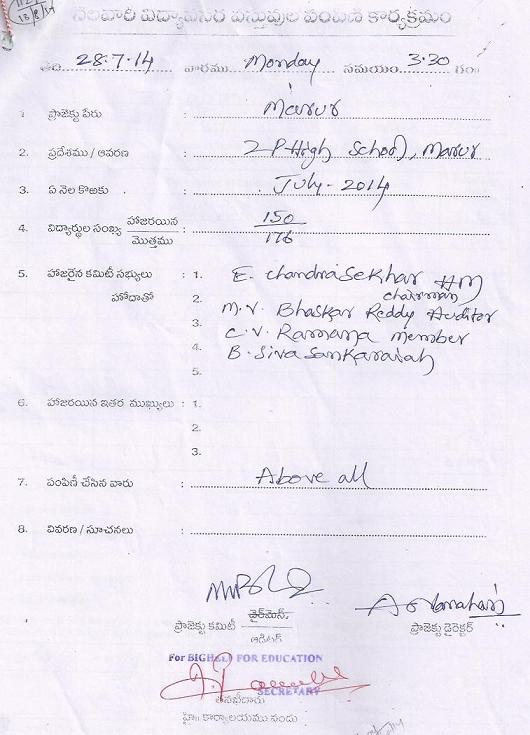 నెలవారీ విద్యావసర వస్తువుల పంపిణీ కార్యక్రమం
తేది 28.7.14 వారము Monday సమయం 3.30 గం॥
1. ప్రాజెక్టు పేరు : Marur
2. ప్రదేశము / ఆవరణ : ZP High School, Marur
3. ఏ నెల కొఱకు : July - 2014
4. విద్యార్థుల సంఖ్య హాజరయిన / మొత్తము : 150 / 176
5. హాజరైన కమిటీ సభ్యులు హోదాతో : 1. E. Chandrasekhar HM
chairman
2. M.V. Bhaskar Reddy Auditor
3. C.V. Ramana member
4. B. Siva Sankaraiah
5.
6. హాజరయిన ఇతర ముఖ్యులు : 1.
2.
3.
7. పంపిణీ చేసిన వారు : Above all
8. వివరణ / సూచనలు :
ప్రాజెక్టు కమిటీ ఛైర్మెన్ ప్రాజెక్టు డైరెక్టర్
ఆడిటర్
For BIGHELP FOR EDUCATION
SECRETARY
తనఖీదారు
హై॥ కార్యాలయము నందు